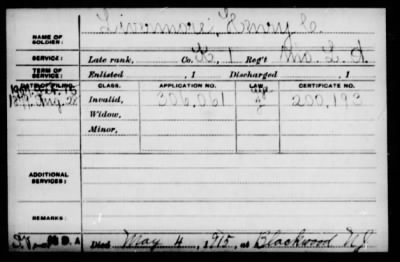 NAME OF SOLDIER: Livermore, Emery C.
SERVICE: Late rank, Co. K, 1 Reg't Mo. L. A.
TERM OF SERVICE: Enlisted , 1 Discharged , 1
DATE OF FILING. CLASS. APPLICATION NO. LAW. CERTIFICATE NO.
Aug. 28 Invalid, 306,061 200,193
Widow,
Minor,
ADDITIONAL SERVICES:
REMARKS:
Died May 4, 1915, at Blackwood NJ